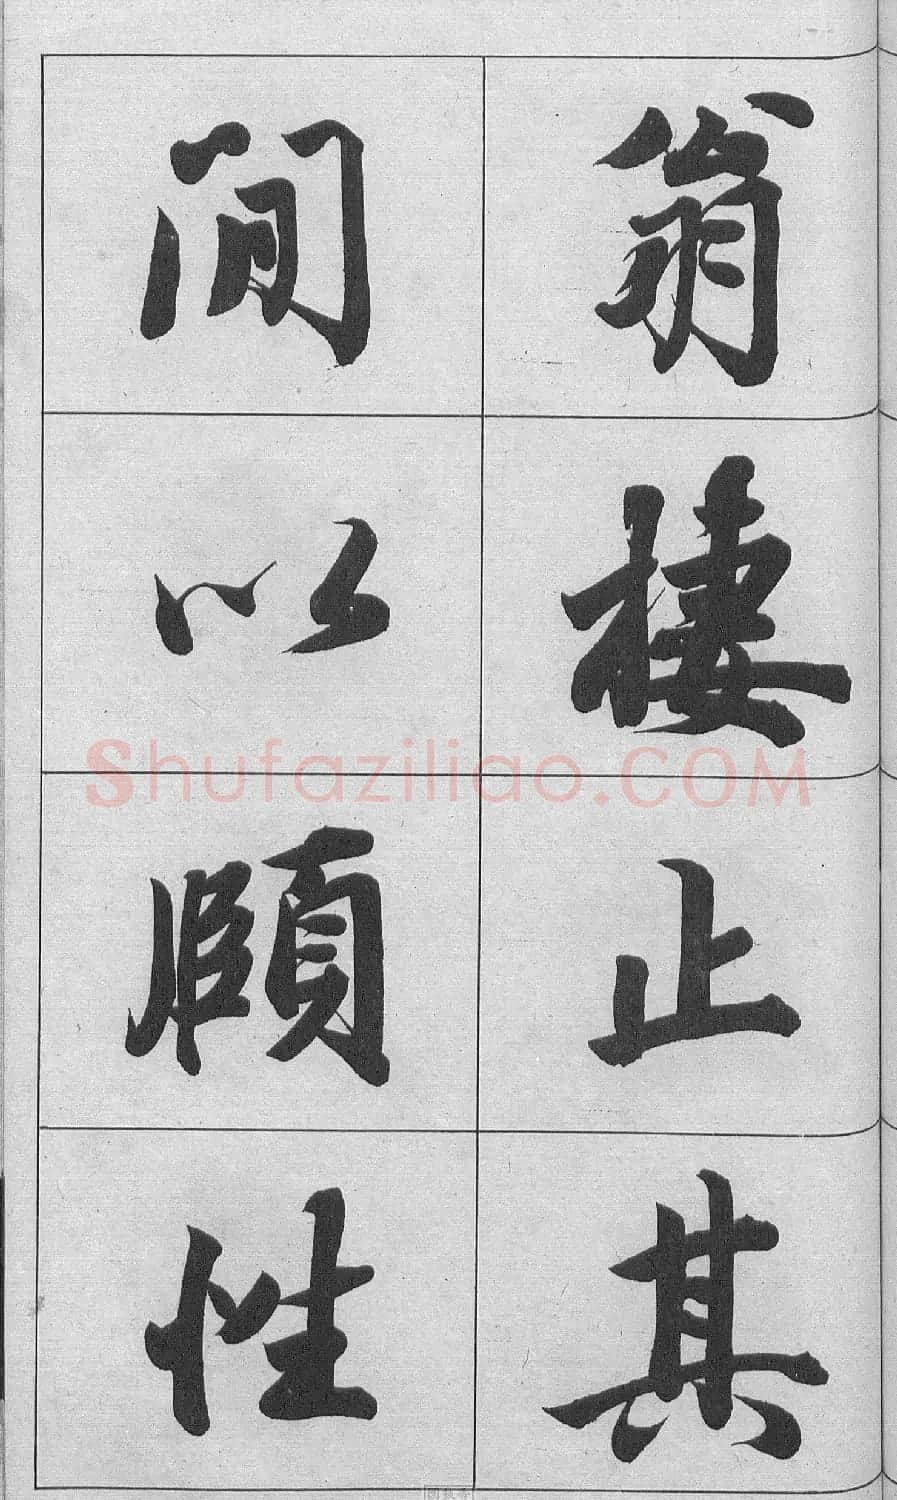 翁棲止其
間以頤性
Shufaziliao.COM